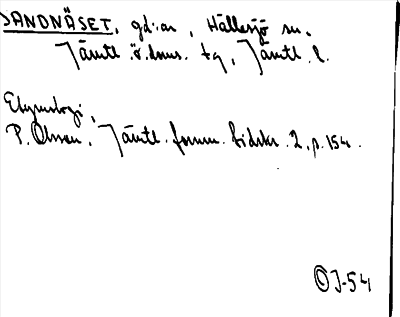 SANDNÄSET, gd:ar, Hällesjö sn.
Jämtl. ö. doms. tg, Jämtl. l.
Etymologi,
P. Olsson, Jämtl. fornm. tidskr. 2, p. 154.
OJ-54